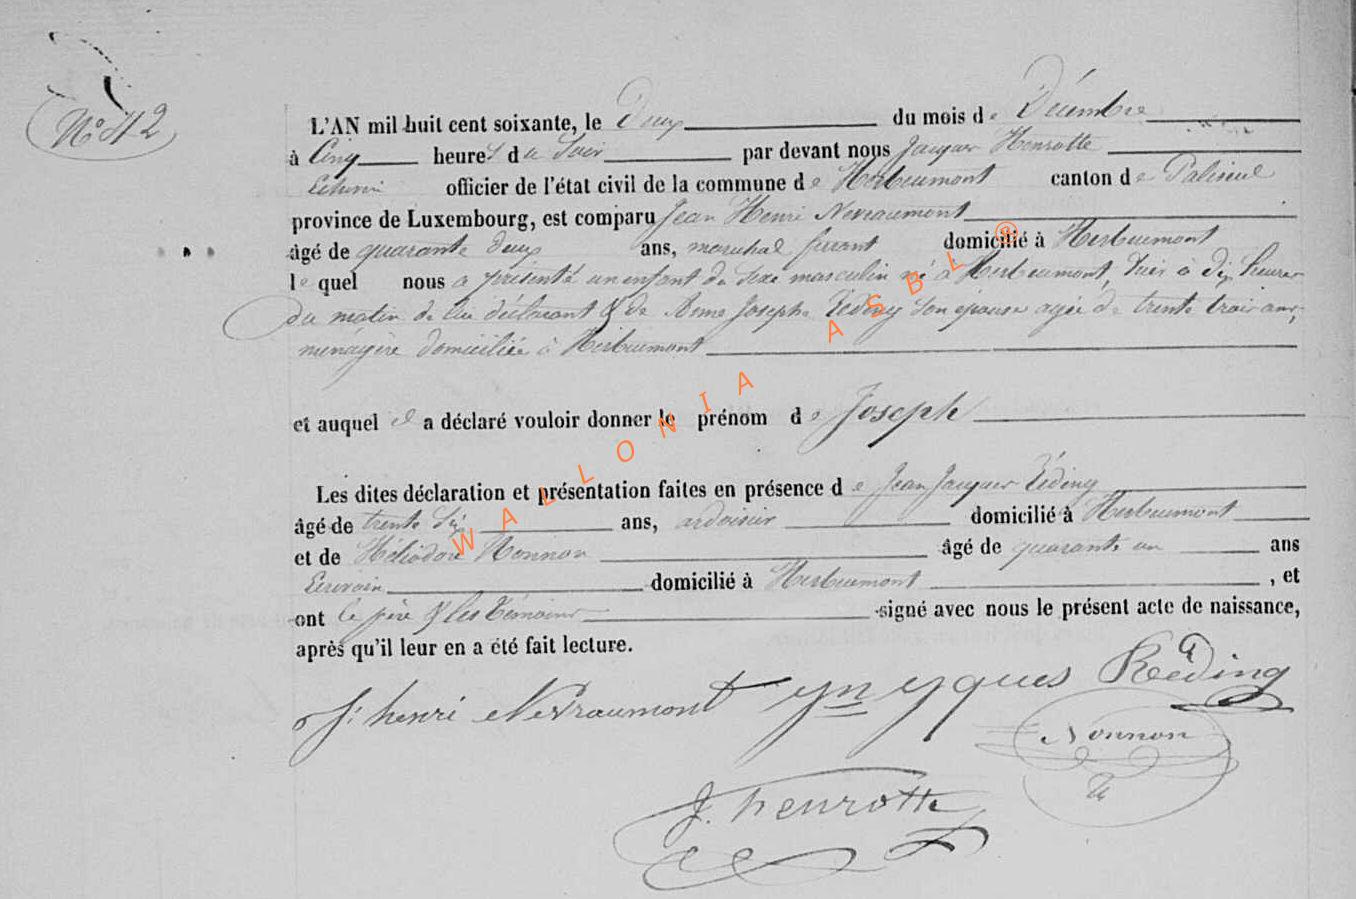 N° 42
L'AN mil huit cent soixante, le Deux du mois de Décembre
à Cinq heures du Soir par devant nous Jacques Henrotte
Echevin officier de l'état civil de la commune de Herbeumont canton de Paliseul
province de Luxembourg, est comparu Jean Henri Nevraumont
âgé de quarante deux ans, maréchal ferrant domicilié à Herbeumont
le quel nous a présenté un enfant du Sexe masculin né à Herbeumont, hier à dix heures
du matin de lui déclarant & de Anne Josephe Réding son épouse agée de trente trois ans,
ménagère domiciliée à Herbeumont
et auquel il a déclaré vouloir donner le prénom de Joseph
Les dites déclaration et présentation faites en présence de Jean Jacques Réding
âgé de trente Six ans, ardoisier domicilié à Herbeumont
et de Héliodore Nonnon âgé de quarante un ans
Ecrivain domicilié à Herbeumont , et
ont le père & les témoins signé avec nous le présent acte de naissance,
après qu'il leur en a été fait lecture.
J: henri Nevraumont yques Reding
Nonnon
J. henrotte
WALLONIA ASBL ®